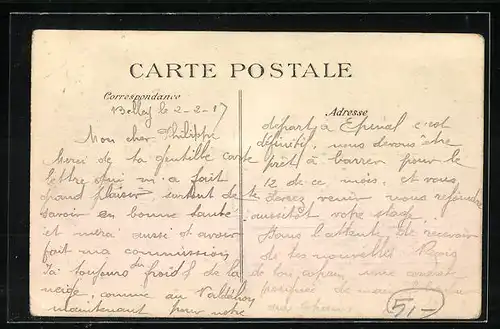 CARTE POSTALE
Correspondance
Adresse
Belley le 2-2-17
Mon cher Philippe
Merci de ta gentille carte
lettre qui m'a fait
grand plaisir, surtout de te
savoir en bonne santé
et merci aussi d'avoir
fait ma commission
J'ai toujours du froid & de la
neige, comme au Valdahon
maintenant pour notre
départ à Epinal c'est
définitif, nous devons être
prêt à barrer pour le
12 de ce mois, et vous
devez venir nous rejoindre
aussitôt votre stage.
Dans l'attente de recevoir
de tes nouvelles Reçois
de ton copain, une
poignée de main
51-